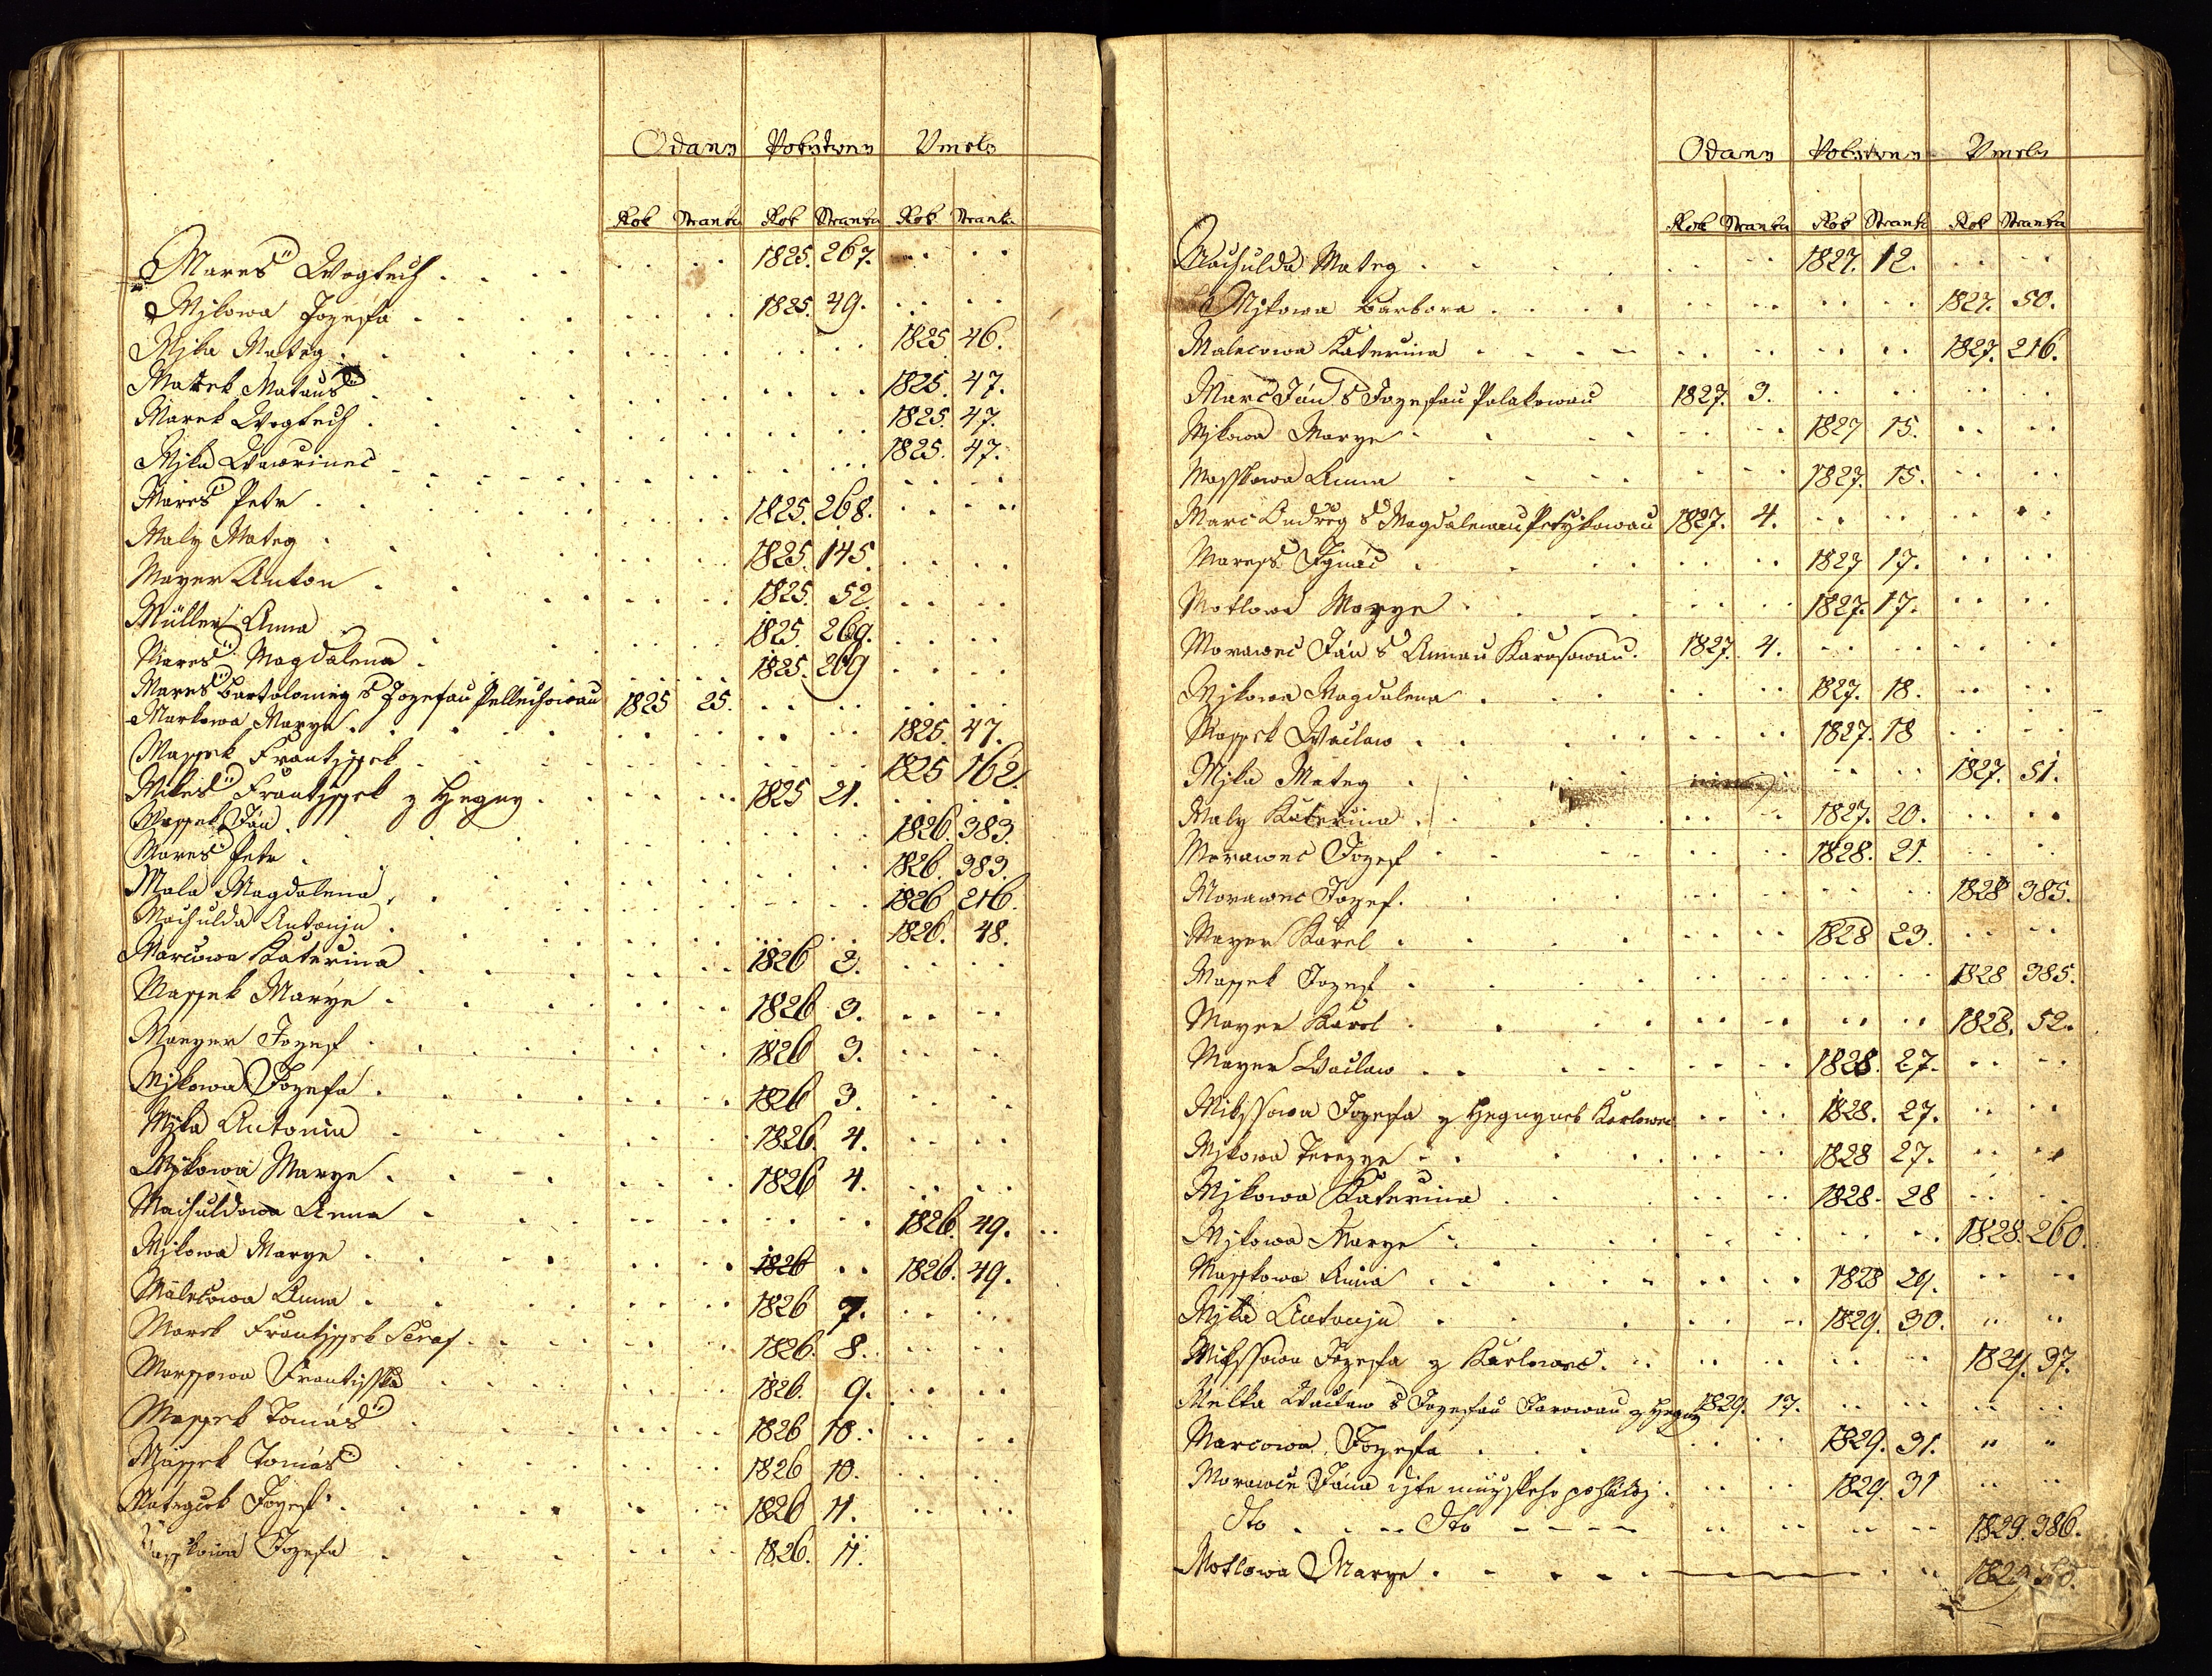 Odany Pokřtěny Umrly
Rok Stranka Rok Stranka Rok Strank.
Mareš Wogtech . . . 1825. 267.
Mjkowa Jozefa . . . 1825. 49.
Mjka Mateg . . . 1825 46.
Marek Matauš . . . 1825. 47.
Marek Wogtech . . . 1825. 47.
Mjka Wawrinec . . . 1825. 47.
Mareš Petr . . . 1825. 268.
Maly Mateg . . . 1825. 145.
Mayer Anton . . . 1825. 52.
Müller Anna . . . 1825. 269.
Mareš Magdalena . . . 1825. 269
Mareš Bartolomeg s Jozefau 1825 25.
Markowa Marye . . . 1825. 47.
Massek Frantissek . . . 1825 162.
Mikeš Frantissek z Hegny . . . 1825 21.
Massek Ján . . . 1826. 383.
Mareš Petr . . . 1826. 383.
Mala Magdalena . . . 1826 216.
Machulda Antonju . . . 1826. 48.
Marcowa Katerina . . . 1826 2.
Massek Marye . . . 1826 3.
Maeyer Jozef . . . 1826 3.
Mjkowa Jozefa . . . 1826 3.
Mjka Antonin . . . 1826. 4.
Mjkowa Marye . . . 1826 4.
Machuldowa Anna . . . 1826. 49.
Mjkowa Marye . . . 1826 . . 1826. 49.
Malecowa Anna . . . 1826 7.
Marek Frantissek Seraf . . . 1826. 8.
Marssowa Frantisska . . . 1826. 9.
Massek Tomaš . . . 1826 10.
Massek Tomáš . . . 1826 10.
Mategcek Jozef . . . 1826 11.
Masskowa Jozefa . . . 1826. 11.
Odany Pokřtěny Umrly
Rok Stranka Rok Stranka Rok Stranka
Machulda Mateg . . . 1827. 12.
Mjkowa Barbora . . . 1827. 50.
Malecowa Katerina . . . 1827. 216.
Marc Ján s Jozefau Polakowau 1827. 3.
Mjkowa Marye . . . 1827 15.
Masskowa Anna . . . 1827. 15.
Marc Ondreg s Magdalenau 1827. 4.
Maress Ignác . . . 1827 17.
Motlowa Marye . . . 1827. 17.
Morawec Ján s Annau Karasowau. 1827. 4.
Mjkowa Magdalena . . . 1827. 18.
Massek Waclaw . . . 1827. 18
Mjka Mateg . . . 1827. 51.
Maly Katerina . . . 1827. 20.
Morawec Jozef . . . 1828. 21.
Morawec Jozef. . . . 1828 385.
Mayer Karel . . . 1828 23.
Massek Jozef . . . 1828 385.
Mayer Karel . . . 1828. 52.
Mayer Waclaw . . . 1828. 27.
Mikssowa Jozefa z Karlowec . . . 1828. 27.
Mjkowa Terezye . . . 1828 27.
Mjkowa Katerina . . . 1828. 28
Mjkowa Marye . . . 1828. 260.
Masskowa Anna . . . 1828 29.
Mjka Antonju . . . 1829. 30.
Mikssowa Jozefa z Karlowec. . . . 1829. 37.
Melka Waclaw s Jozefau Jarowau z Hegny 1829. 17.
Marcowa Jozefa . . . 1829. 31.
Morawce Jána djte . . . 1829. 31
dto . . . dto . . . 1829. 386.
Motlowa Marye . . . 1829